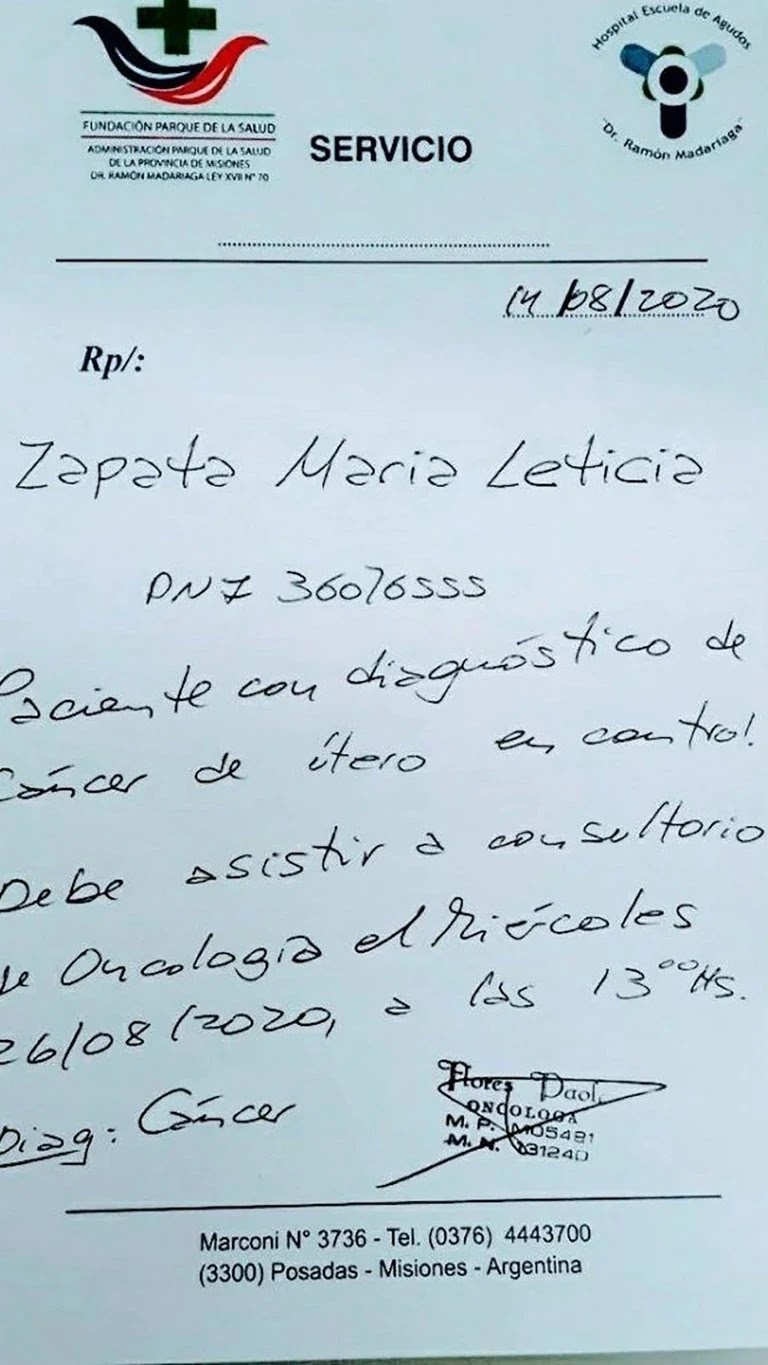 FUNDACIÓN PARQUE DE LA SALUD
ADMINISTRACIÓN PARQUE DE LA SALUD
DE LA PROVINCIA DE MISIONES
DR. RAMÓN MADARIAGA LEY XVII Nº 70
SERVICIO
Hospital Escuela de Agudos
"Dr. Ramón Madariaga"
14/08/2020
Rp/:
Zapata Maria Leticia
DNI 36076555
Paciente con diagnóstico de
Cáncer de útero en control.
Debe asistir a consultorio
de Oncologia el Miércoles
26/08/2020, a las 13⁰⁰Hs.
Diag: Cáncer
Flores Paol
ONCOLOGA
M. P. M05481
M. N. 131240
Marconi N° 3736 - Tel. (0376) 4443700
(3300) Posadas - Misiones - Argentina